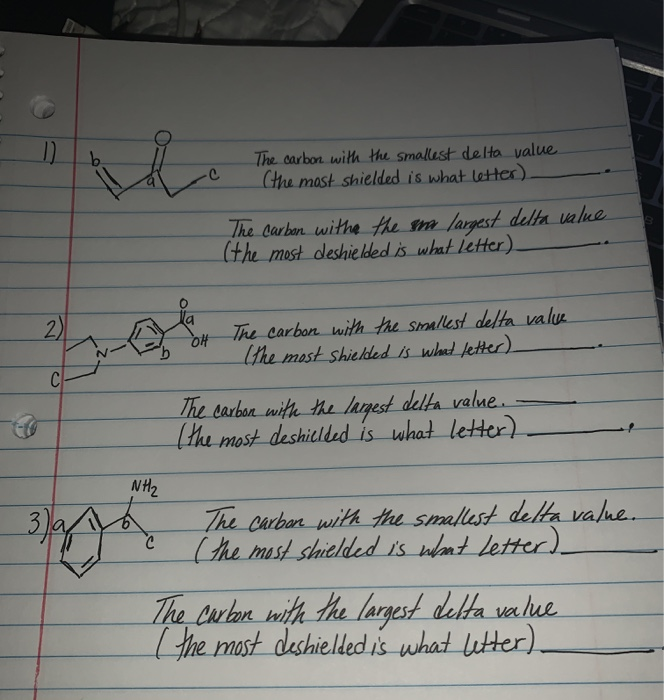 1) b O a c The carbon with the smallest delta value
(the most shielded is what letter) ______.
The carbon with the largest delta value
(the most deshielded is what letter) ______.
2) O a OH b N C The carbon with the smallest delta value
(the most shielded is what letter) ______.
The carbon with the largest delta value. ______
(the most deshielded is what letter) ______.
NH2
3) a b c The carbon with the smallest delta value.
(the most shielded is what letter) ______
The carbon with the largest delta value
(the most deshielded is what letter) ______